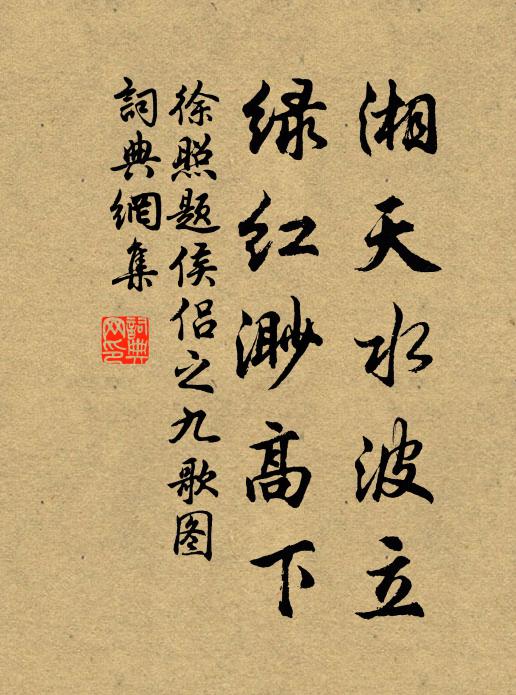 湘天水波立
绿红渺高下
徐照题侯侣之九歌图
詞典網集
詞典网印